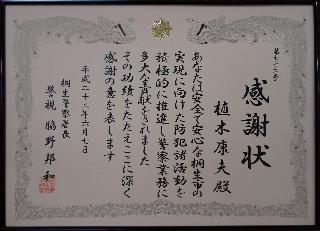 感謝状
植木康夫殿
あなたは安全で安心な桐生市の
実現に向けた防犯諸活動を
積極的に推進し警察業務に
多大な貢献をされました
その功績をたたえここに深く
感謝の意を表します
平成二十二年六月七日
桐生警察署長
警視 脇野邦和